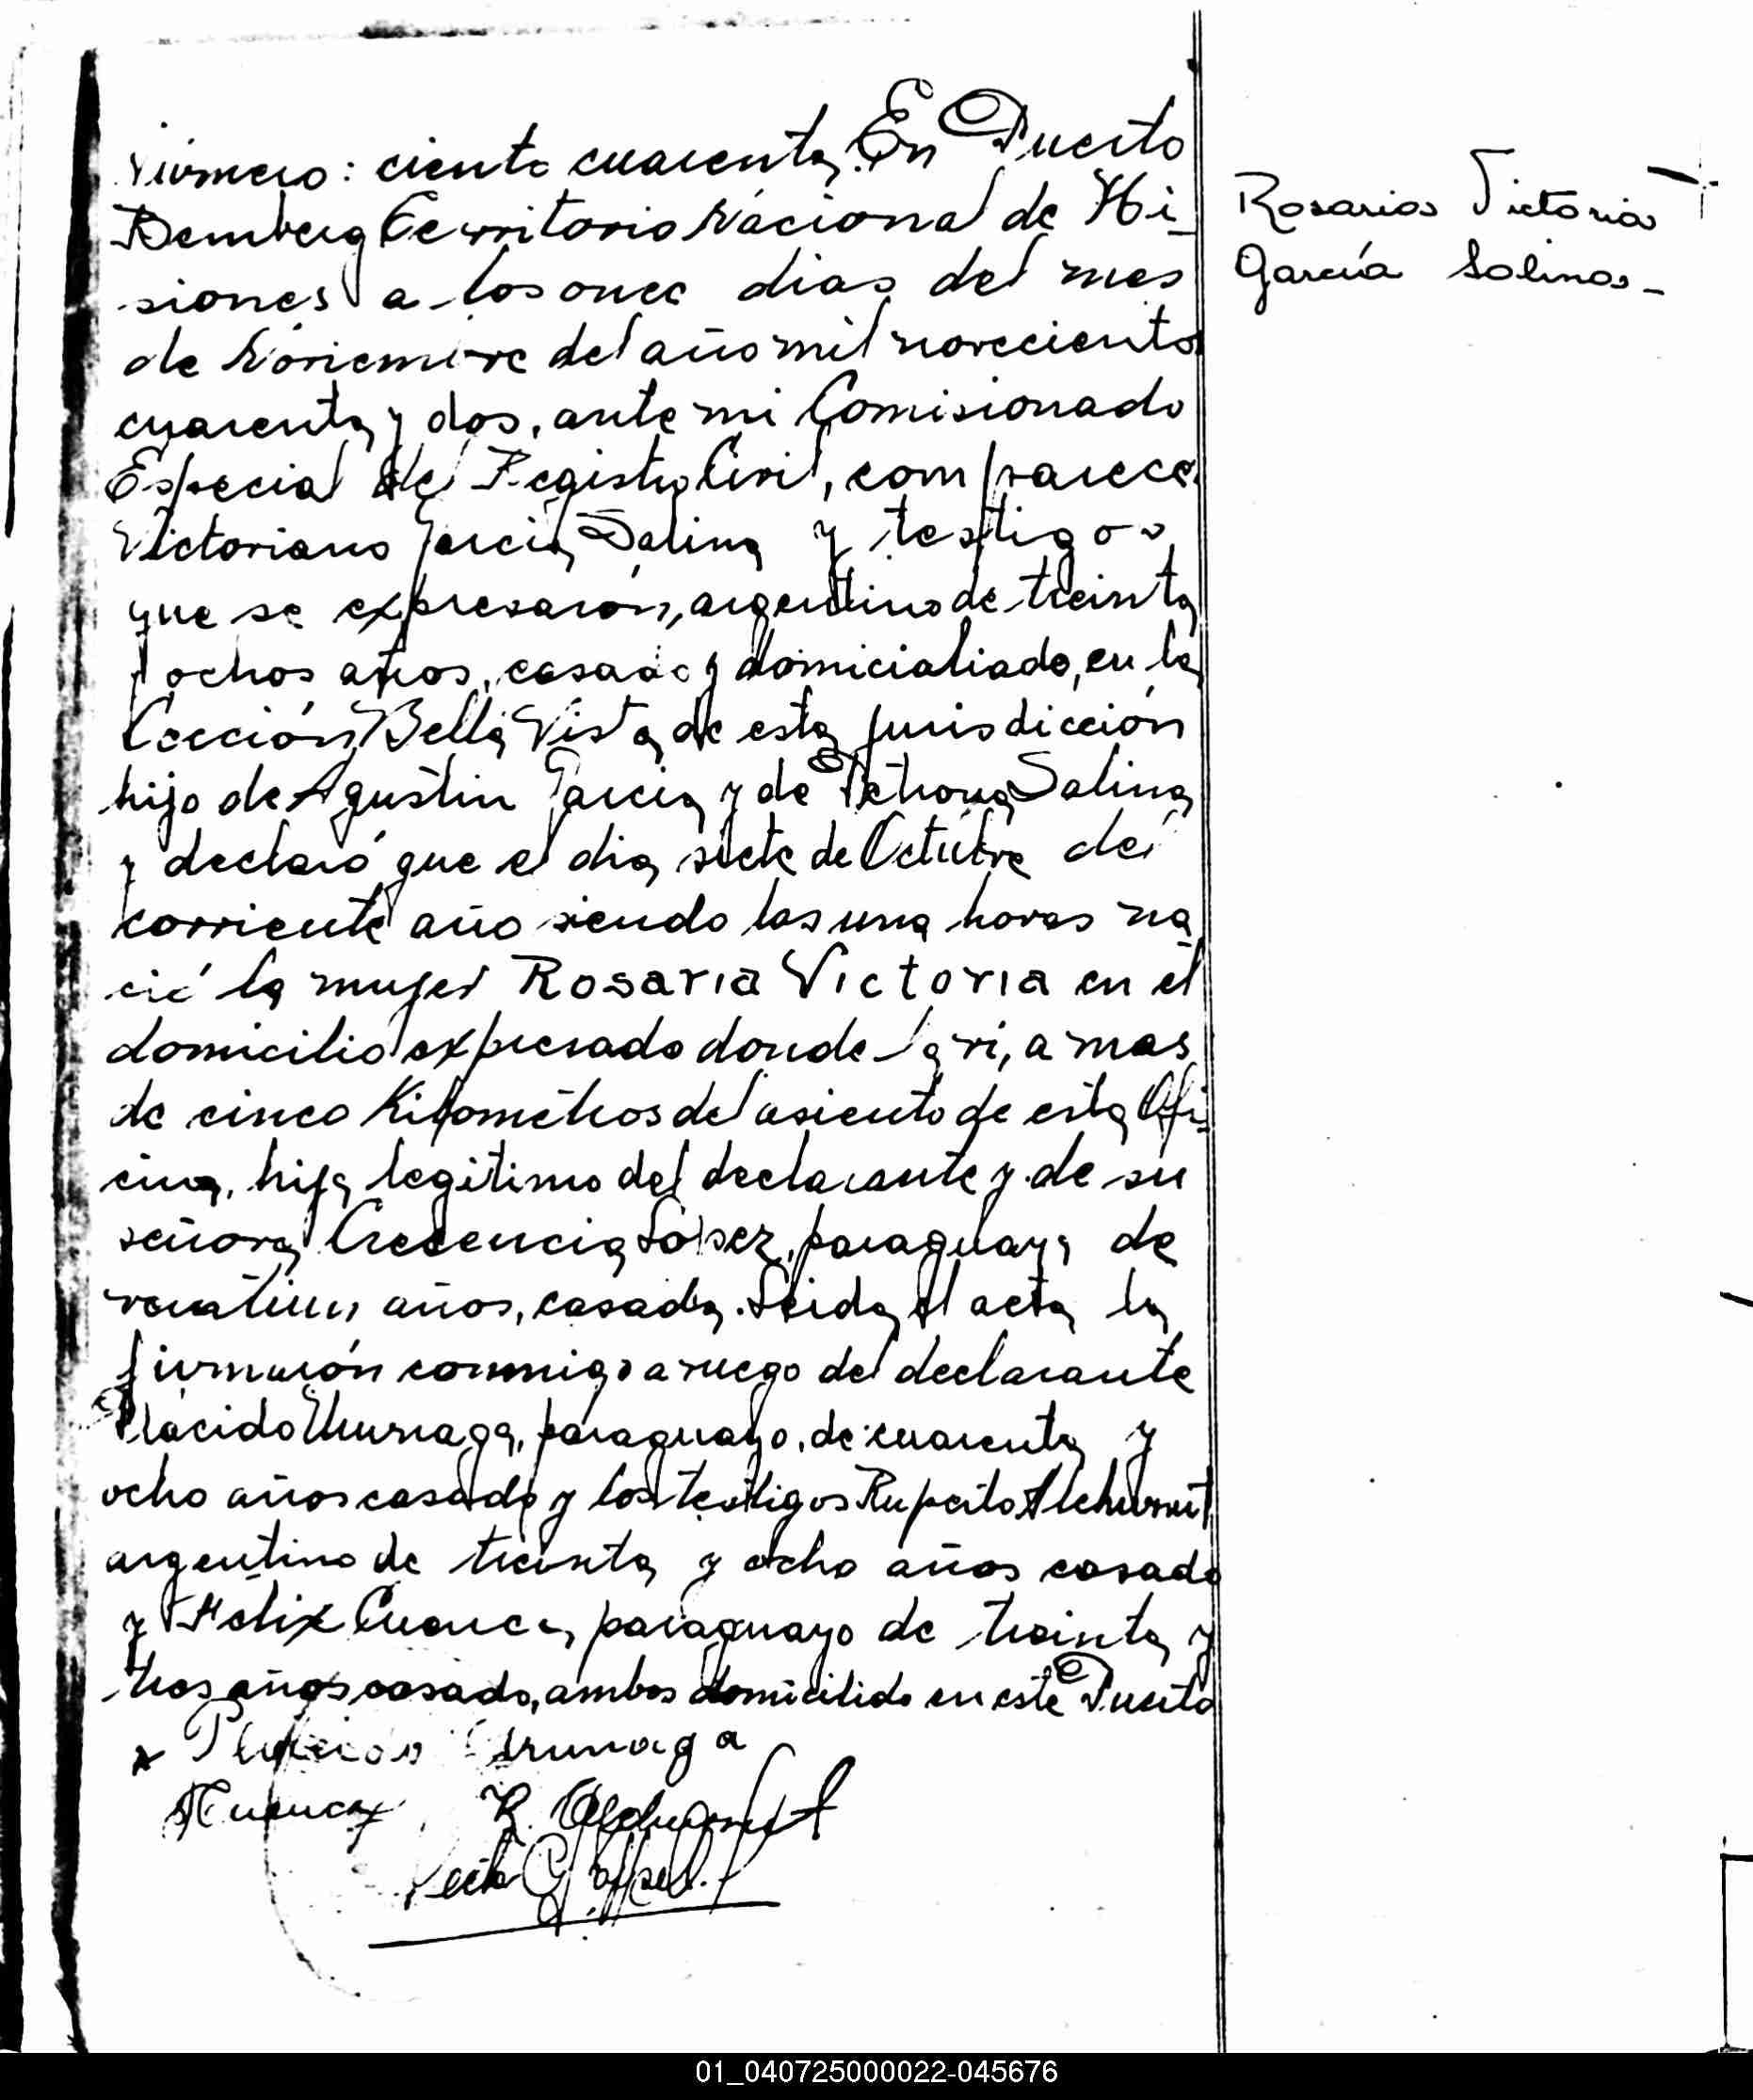 Número: ciento cuarenta. En Puerto
Bemberg Territorio Nacional de Mi-
siones a los once dias del mes
de Noviembre del año mil novecientos
cuarenta y dos, ante mi Comisionado
Especial del Registro Civil, comparece
Victoriano Garcia Salina y testigos
que se expresarón, argentino de treinta
y ochos años, casado y domicialiado, en la
Cección Bella Vista de esta jurisdicción
hijo de Agustin Garcia y de Petrona Salina
y declaró que el dia siete de Octubre del
corriente año siendo las una horas na-
ció la mujer Rosaria Victoria en el
domicilio expresado donde la ví, a mas
de cinco Kilométros del asiento de esta Ofi-
cina, hija legitimo del declarante y de su
señora Crecencia Lopez, paraguaya de
años, casada. Leida el acta la
firmarón conmigo a ruego del declarante
Plácido Urunaga, paraguayo, de cuarenta y
ocho años casado y los testigos Ruperto
argentino de treinta y ocho años casado
y Felix Cuenca, paraguayo de treinta y
tres años casado, ambos domicilido en este Puerto
x Placido Urunaga
Cuenca R.
Rosaria Victoria
García Salinas-
01_040725000022-045676